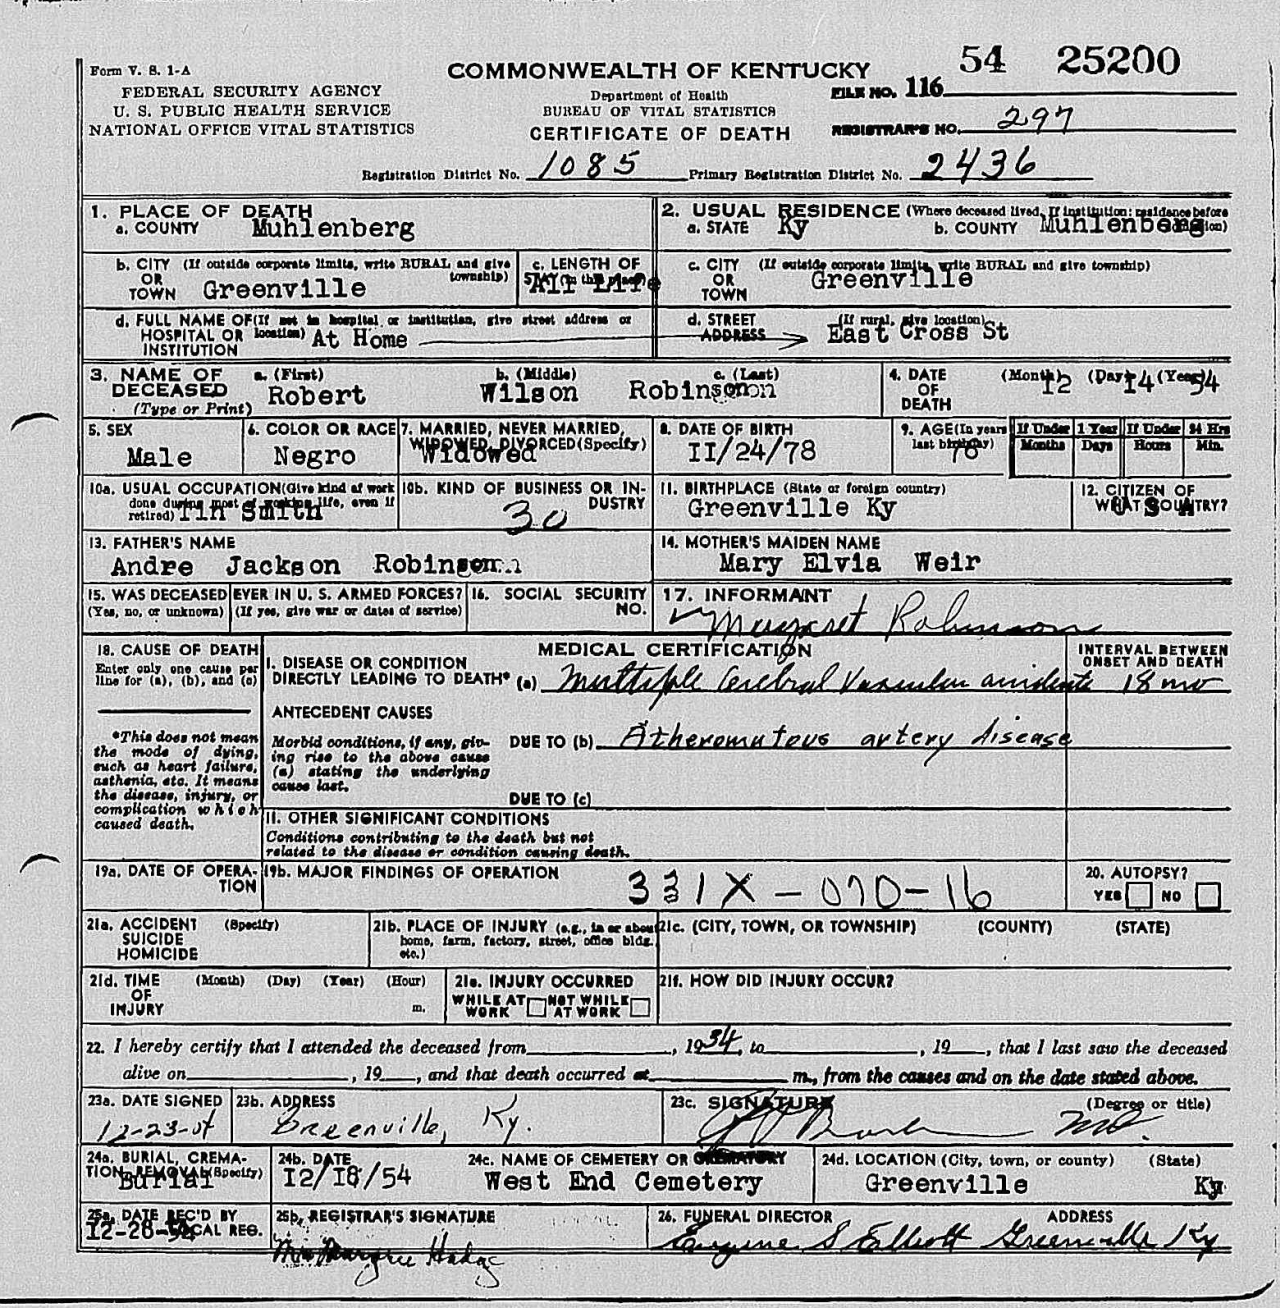 Form V. S. 1-A
FEDERAL SECURITY AGENCY
U. S. PUBLIC HEALTH SERVICE
NATIONAL OFFICE VITAL STATISTICS
COMMONWEALTH OF KENTUCKY
Department of Health
BUREAU OF VITAL STATISTICS
CERTIFICATE OF DEATH
54 25200
FILE NO. 116
REGISTRAR'S NO. 297
Registration District No. 1085 Primary Registration District No. 2436
1. PLACE OF DEATH
a. COUNTY Muhlenberg
2. USUAL RESIDENCE (Where deceased lived. If institution: residence before
a. STATE Ky b. COUNTY Muhlenberg
b. CITY (If outside corporate limits, write RURAL and give township)
OR
TOWN Greenville
c. LENGTH OF
All Life
c. CITY (If outside corporate limits, write RURAL and give township)
OR
TOWN Greenville
d. FULL NAME OF (If not in hospital or institution, give street address or location)
HOSPITAL OR
INSTITUTION At Home
d. STREET (If rural, give location)
ADDRESS East Cross St
3. NAME OF DECEASED
(Type or Print)
a. (First) b. (Middle) c. (Last)
Robert Wilson Robinson
4. DATE OF DEATH (Month) (Day) (Year)
12 14 54
5. SEX
Male
6. COLOR OR RACE
Negro
7. MARRIED, NEVER MARRIED,
WIDOWED, DIVORCED (Specify)
Widowed
8. DATE OF BIRTH
II/24/78
9. AGE (In years
last birthday)
76
If Under 1 Year If Under 24 Hrs
Months Days Hours Min.
10a. USUAL OCCUPATION (Give kind of work
done during most of working life, even if
retired) Tin Smith
10b. KIND OF BUSINESS OR IN-
DUSTRY
30
11. BIRTHPLACE (State or foreign country)
Greenville Ky
12. CITIZEN OF
WHAT COUNTRY?
U S A
13. FATHER'S NAME
Andre Jackson Robinson
14. MOTHER'S MAIDEN NAME
Mary Elvia Weir
15. WAS DECEASED EVER IN U. S. ARMED FORCES?
(Yes, no, or unknown) (If yes, give war or dates of service)
16. SOCIAL SECURITY
NO.
17. INFORMANT
Margaret Robinson
18. CAUSE OF DEATH
Enter only one cause per
line for (a), (b), and (c)
*This does not mean
the mode of dying,
such as heart failure,
asthenia, etc. It means
the disease, injury, or
complication which
caused death.
MEDICAL CERTIFICATION
INTERVAL BETWEEN
ONSET AND DEATH
I. DISEASE OR CONDITION
DIRECTLY LEADING TO DEATH* (a) Multiple Cerebral Vascular accidents 18 mo
ANTECEDENT CAUSES
Morbid conditions, if any, giv-
ing rise to the above cause
(a) stating the underlying
cause last.
DUE TO (b) Atheromatous artery disease
DUE TO (c)
II. OTHER SIGNIFICANT CONDITIONS
Conditions contributing to the death but not
related to the disease or condition causing death.
19a. DATE OF OPERA-
TION
19b. MAJOR FINDINGS OF OPERATION
331X - 070-16
20. AUTOPSY?
YES NO
21a. ACCIDENT (Specify)
SUICIDE
HOMICIDE
21b. PLACE OF INJURY (e.g., in or about
home, farm, factory, street, office bldg.
etc.)
21c. (CITY, TOWN, OR TOWNSHIP) (COUNTY) (STATE)
21d. TIME (Month) (Day) (Year) (Hour)
OF
INJURY m.
21e. INJURY OCCURRED
WHILE AT WORK NOT WHILE AT WORK
21f. HOW DID INJURY OCCUR?
22. I hereby certify that I attended the deceased from , 1954, to , 19 , that I last saw the deceased
alive on , 19 , and that death occurred at m., from the causes and on the date stated above.
23a. DATE SIGNED
12-23-54
23b. ADDRESS
Greenville, Ky.
23c. SIGNATURE (Degree or title)
MD.
24a. BURIAL, CREMA-
TION, REMOVAL (Specify)
Burial
24b. DATE
I2/I8/54
24c. NAME OF CEMETERY OR CREMATORY
West End Cemetery
24d. LOCATION (City, town, or county) (State)
Greenville Ky
25a. DATE REC'D BY
LOCAL REG.
I2-28-54
25b. REGISTRAR'S SIGNATURE
26. FUNERAL DIRECTOR ADDRESS
Eugene S Elliott Greenville Ky